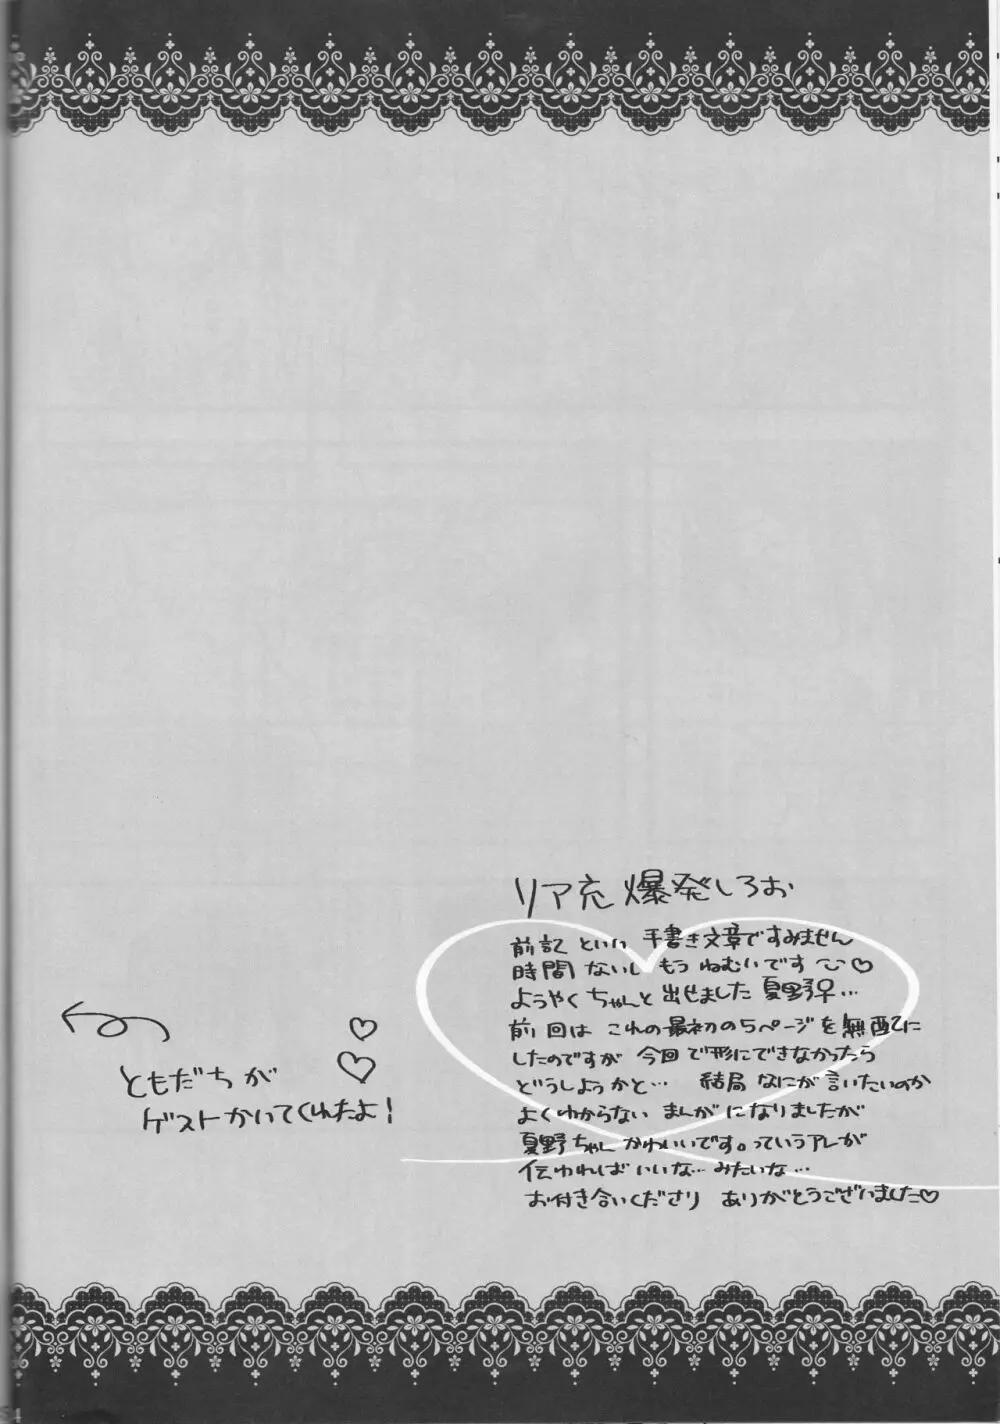 リア充爆発しろお
前記といい手書き文章ですみません
時間ないしもうねむいです♡
ようやくちゃんと出せました夏野♀…
前回はこれの最初の5ページを無配に
したのですが今回で形にできなかったら
どうしようかと… 結局なにが言いたいのか
よくわからないまんがになりましたが
夏野ちゃんかわいいです。っていうアレが
伝わればいいな…みたいな…
お付き合いくださりありがとうございました♡
ともだちが
ゲストかいてくれたよ!
54